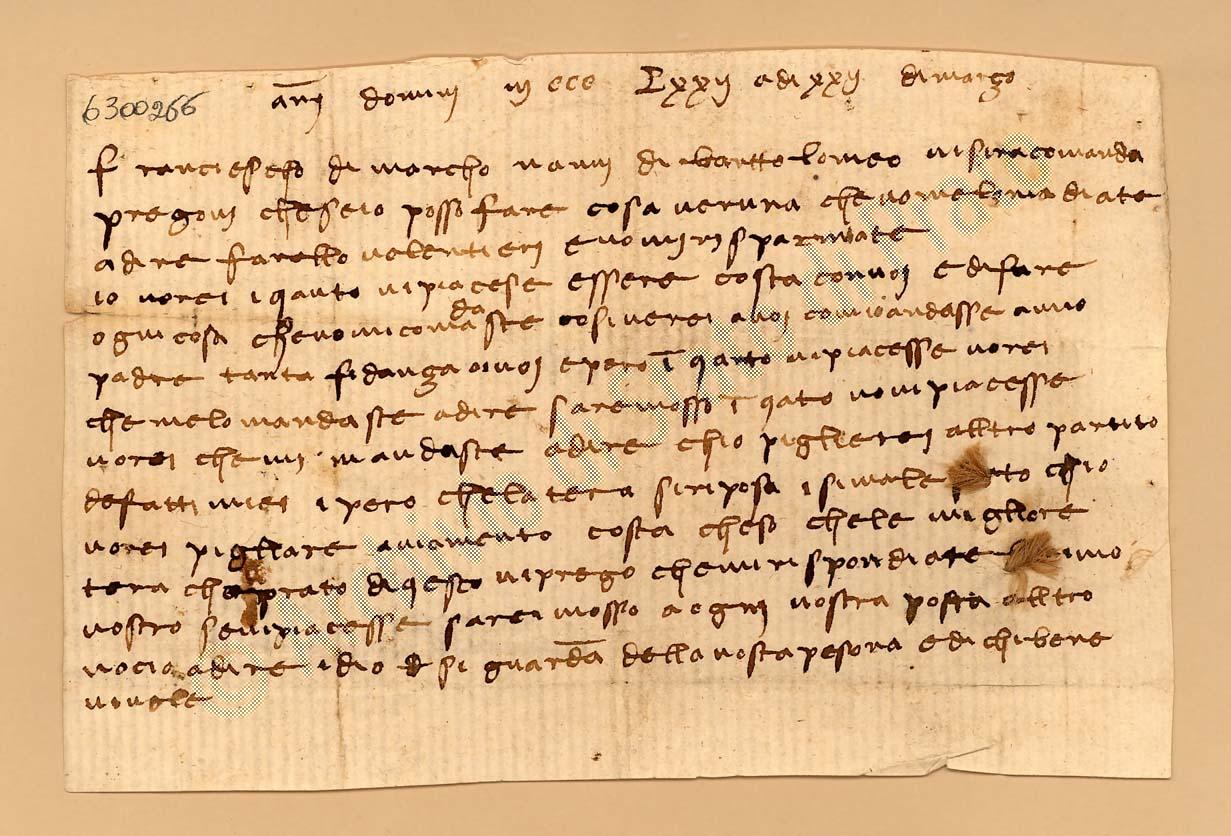 6300266
anni domini mccc Lxxii adi xxii di março
franciescho di marcho nanni di barttolomeo visiracomanda
pregovi cheseio posso fare cosa veruna chevomelomadiate
adire farello volentieri enomirisparmiate
io vorei iqanto vipiacese essere costa convoi edifare
ogni cosa chevomicomandaste cosi verei avoi comioandasse amio
padre tanta fidança oivoi epero iqanto vipiacesse vorei
che melo mandaste adire saremosso iqato nonvipiacesse
vorei chemi mandaste adire chio piglierei alltro partito
defatti miei ipero chelatera siriposa isimale to chio
vorei pigliare aviamento costa cheso chele migliore
tera che prato diqesto viprego chemirispondiate
vostro sevipiacesse sarei mosso aogni vostra posta alltro
nocio adire idio si guarda dellavosta pesona edi chibene
vivole